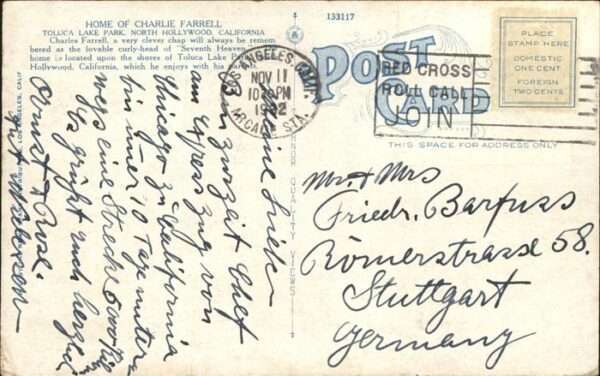 HOME OF CHARLIE FARRELL
TOLUCA LAKE PARK, NORTH HOLLYWOOD, CALIFORNIA
Charles Farrell, a very clever chap will always be remem-
bered as the lovable curly-head of "Seventh Heaven
home is located upon the shores of Toluca Lake
Hollywood, California, which he enjoys with his
133117
POST CARD
LOS ANGELES, CALIF.
NOV 11
1932
ARCADE STA.
RED CROSS
ROLL CALL
JOIN
PLACE
STAMP HERE
DOMESTIC
ONE CENT
FOREIGN
TWO CENTS
THIS SPACE FOR ADDRESS ONLY
LOS ANGELES, CALIF.
QUALITY VIEWS
Meine Liebe
Bin zurzeit Chef
am Express Zug von
Chicago zu California
bin immer 10 Tage unter-
wegs eine Strecke 6000
Es grüßt euch herzlich
& Rose.
Mr. & Mrs
Friedr. Barfuss
Römerstrasse 58.
Stuttgart
Germany